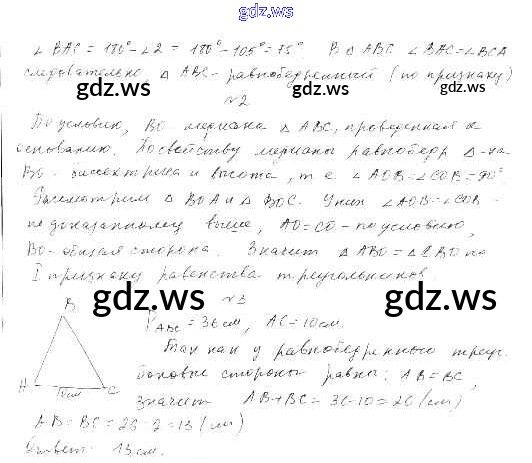 gdz.ws
∠BAC = 180° - ∠2 = 180° - 105° = 75°. В △ABC ∠BAC = ∠BCA
следовательно, △ABC - равнобедренный (по признаку)
gdz.ws gdz.ws gdz.ws
№2
По условию, BO - медиана △ABC, проведенная к
основанию. По свойству медианы равнобедр △-ка
BO - биссектриса и высота, т.е. ∠AOB = ∠COB = 90°
Рассмотрим △BOA и △BOC. У них ∠AOB = ∠COB -
по доказанному выше, AO = CO - по условию,
BO - общая сторона. Значит △ABO = △CBO по
I признаку равенства треугольников.
gdz.ws gdz.ws
№3
B
P ABC = 36 см, AC = 10 см.
Так как у равнобедренного треуг.
боковые стороны равны: AB = BC,
A 10 см C
значит AB + BC = 36 - 10 = 26 (см)
AB = BC = 26 : 2 = 13 (см)
Ответ: 13 см.
gdz.ws gdz.ws